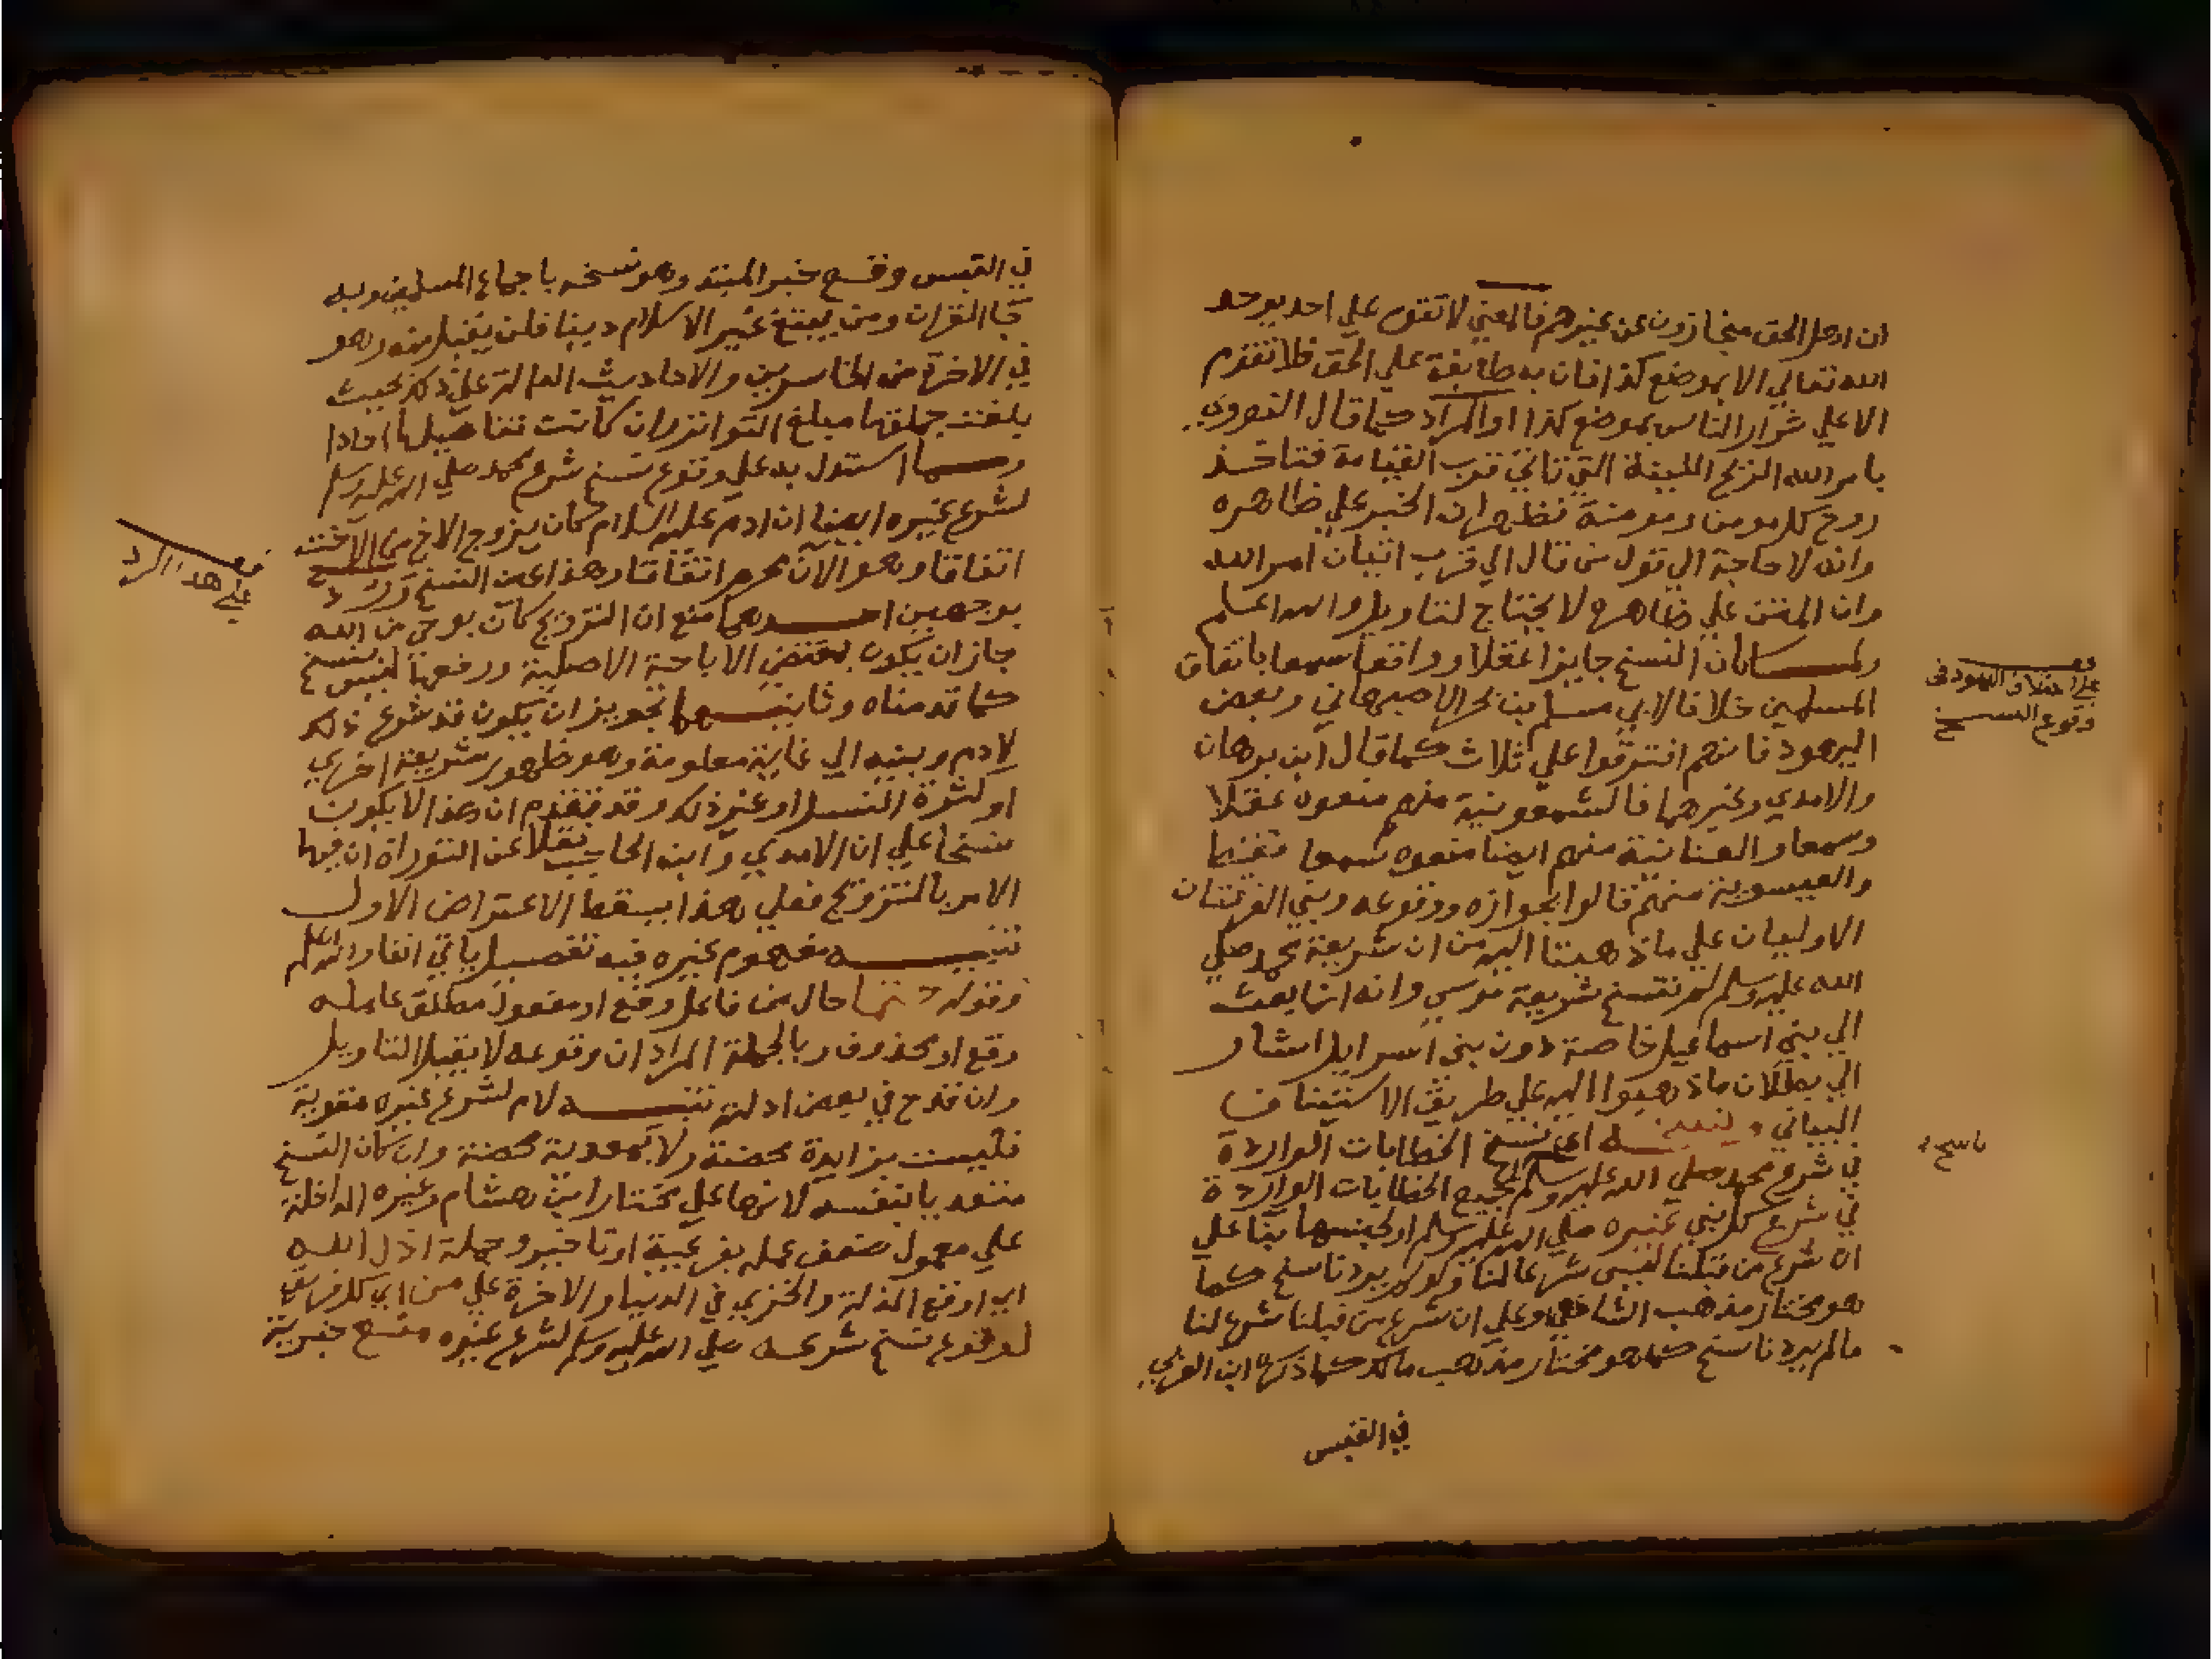 ان اهل الحق منحازون عن غيرهم فالمعني لا تقوم علي احد يوحد
الله تعالي الا بموضع كذا فان به طايفة علي الحق فلا تقوم
الا علي شرار الناس بموضع كذا او المراد كما قال النووي
بامر الله الريح اللينة التي تاتي قرب القيامة فتاخذ
روح كل مومن ومومنة فظهر ان الخبر علي ظاهره
وانه لا حاجة الي قول من قال الي قرب اتيان امر الله
وان المتن علي ظاهره لا يحتاج لتاويل والله اعلم
ولما كان النسخ جايزا عقلا وواقعا سمعا باتفاق
المسلمين خلافا لابي مسلم بن بحر الاصبهاني وبعض
اليهود فانهم افترقوا علي ثلاث كما قال ابن برهان
والامدي وغيرهما فالشمعونية منهم منعوه عقلا
وسمعا والعنانية منهم ايضا منعوه سمعا
والعيسوية منهم قالوا بجوازه ووقوعه وبني الفرقتان
الاوليان علي ما ذهبتا اليه من ان شريعة محمد صلي
الله عليه وسلم لم تنسخ شريعة موسي وانه انما بعث
الي بني اسماعيل خاصة دون بني اسرايل اشار
الي بطلان ما ذهبوا اليه علي طريق الاستيناف
البياني و اي نسخ الخطابات الواردة
في شرع محمد صلي الله عليه وسلم لجميع الخطابات الواردة
في شرع كل نبي غيره صلي الله عليه وسلم او لجنسها بنا علي
ان شرع من قبلنا ليس شرعا لنا ولو لم يرد ناسخ كما
هو مختار مذهب الشافعي وعلي ان شرع من قبلنا شرع لنا
ما لم يرد ناسخ كما هو مختار مذهب مالك كما ذكره ابن العربي
في القبس
علي اختلاف اليهود في
وقوع النسخ
ناسخ
في القبس وقع خبر المبتدا وهو نسخه باجماع المسلمين وبه
جا القران ومن يبتغ غير الاسلام دينا فلن يقبل منه وهو
في الاخرة من الخاسرين والاحاديث الدالة علي ذلك بحيث
بلغت جملتها مبلغ التواتر وان كانت تفاصيلها احادا
ومما استدل به علي وقوع نسخ شرع محمد صلي الله عليه وسلم
لشرع غيره ايضا ان ادم عليه السلام كان يزوج الاخ من الاخت
اتفاقا وهو الان محرم اتفاقا وهذا عين النسخ ورد
بوجهين احدهما منع ان التزويج كان بوحي من الله
جاز ان يكون بمقتضي الاباحة الاصلية ورفعها ليس بنسخ
كما قدمناه وثانيهما تجويز ان يكون قد شرع ذلك
لادم وبنيه الي غاية معلومة وهو ظهور شريعة اخري
او كثرة النسل او غير ذلك وقد تقدم ان هذا لا يكون
نسخا علي ان الامدي وابن الحاجب نقلا عن التوراة ان فيها
الامر بالتزويج فعلي هذا يسقط الاعتراض الاول
تنبيه مفهوم غيره فيه تفصيل ياتي انفا والله اعلم
وقوله حتما حال من فاعل وقع او مفعول مطلق عامله
وقع او محذوف وبالجملة المراد ان وقوعه لا يقبل التاويل
وان قدح في بعض ادلته تنبيه لام لشرع غيره مقوية
فليست بزايدة محضة ولا بمعدية محضة وان كان النسخ
متعديا بنفسه لانها علي مختار ابن هشام وغيره الداخلة
علي معمول ضعف عمله بفرعية او تاخير وجملة اذل الله
اي اوقع المذلة والخزي في الدنيا والاخرة علي من اي كل فريق
لوقوع نسخ شرعه صلي الله عليه وسلم لشرع غيره منع خبرية
علي هذا الرد